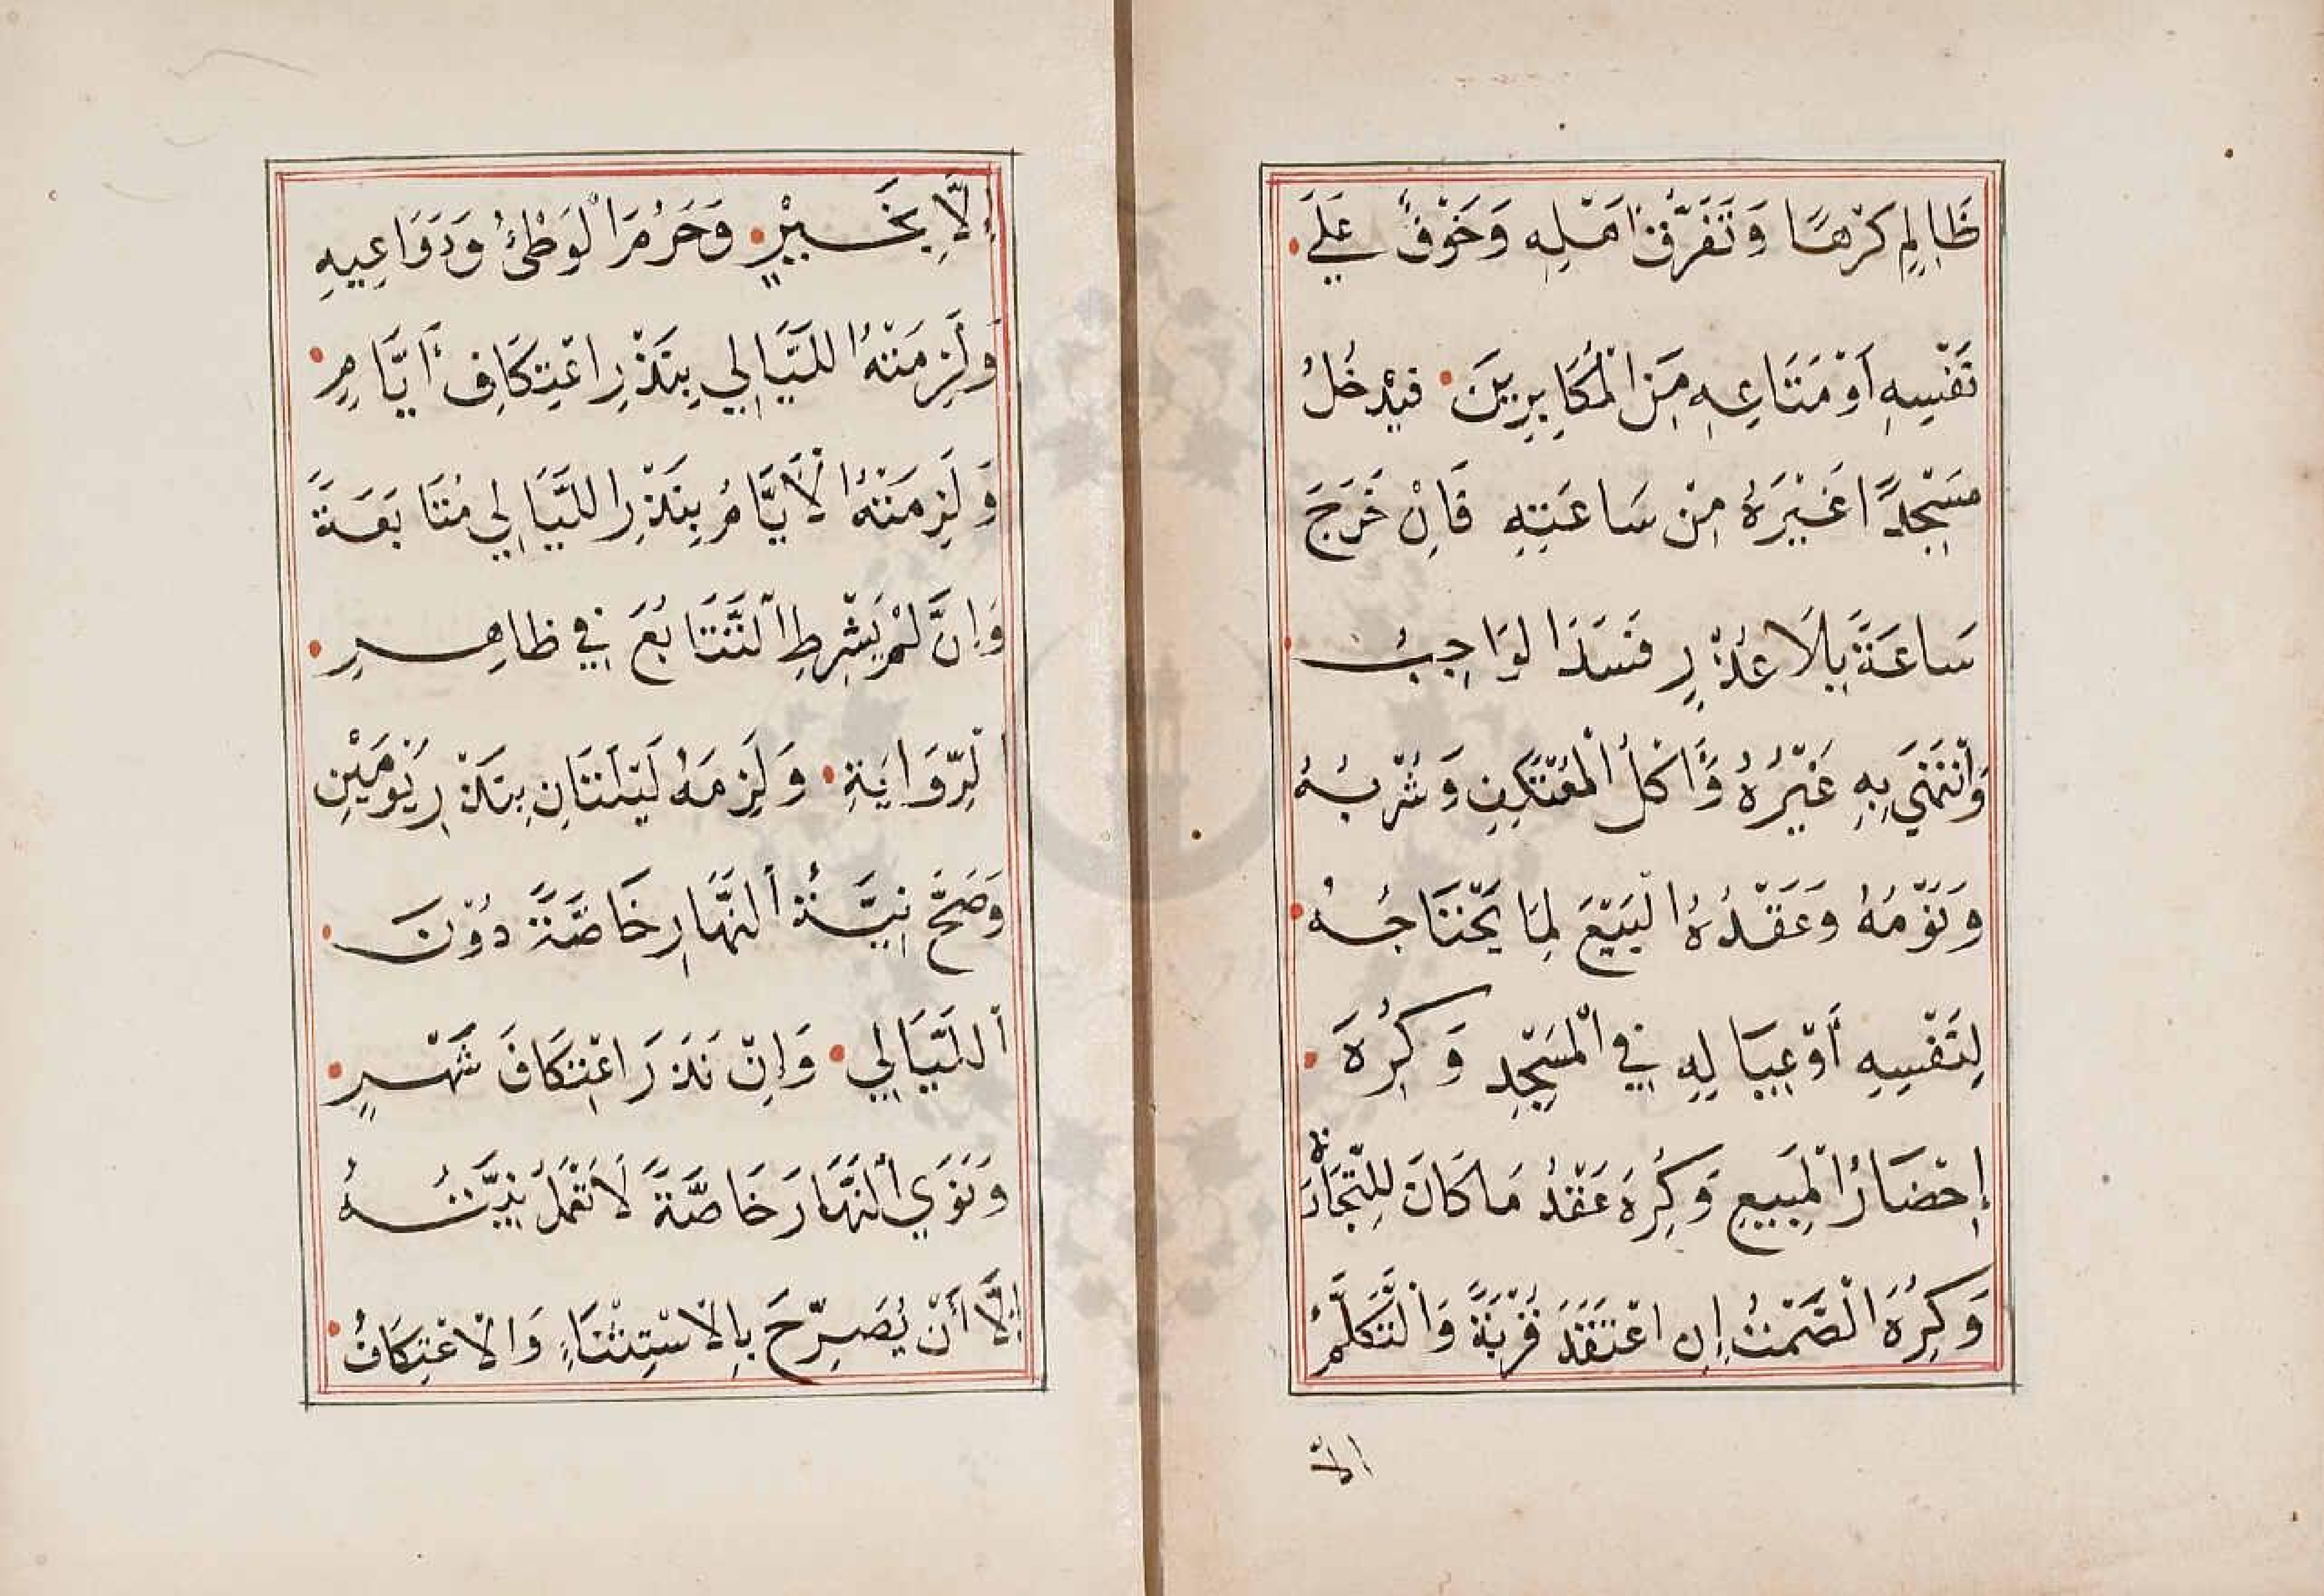 ظَالِمٍ كَرْهًا وَتَفَرَّقَ اَهْلِهِ وَخَوْفٌ عَلَى
نَفْسِهِ أَوْ مَتَاعِهِ مِنَ الْمُكَابِرِينَ فَيَدْخُلُ
مَسْجِدًا غَيْرَهُ مِنْ سَاعَتِهِ فَاِنْ خَرَجَ
سَاعَةً بِلَا عُذْرٍ فَسَدَ الوَاجِبُ
وَانْتَهَى بِهِ غَيْرُهُ وَاَكْلُ الْمُعْتَكِفِ وَشُرْبُهُ
وَنَوْمُهُ وَعَقْدُهُ الْبَيْعَ لِمَا يَحْتَاجُهُ
لِنَفْسِهِ أَوْ عِيَالِهِ فِي الْمَسْجِدِ وَكُرِهَ
إِحْضَارُ الْمَبِيعِ وَكُرِهَ عَقْدُ مَا كَانَ لِلتِّجَارَة
وَكُرِهَ الْصَّمْتُ إِنِ اعْتَقَدَ قُرْبَةً وَالْتَّكَلُّمُ
الّا
إِلَّا بِخَيْرٍ وَحَرُمَ الْوَطْئُ وَدَوَاعِيهِ
وَلَزِمَتْهُ اللَّيَالِي بِنَذْرِ اعْتِكَافِ أَيَّامٍ
وَلَزِمَتْهُ الْأَيَّامُ بِنَذْرِ اللَّيَالِي مُتَتَابَعَةً
وَاِنَّ لَمْ يَشْرِطِ الْتَّتَابُعَ فِي ظَاهِرِ
الْرِّوَايَةِ وَلَزِمَهُ لَيْلَتَانِ بِنَذْرِ يَوْمَيْنِ
وَصَحَّ نِيَّةُ ألنَّهَارِ خَاصَّةً دُوْنَ
أللَّيَالِي وَاِنْ نَذَرَ اعْتِكَافَ شَهْرٍ
وَنَوَى ألنَّهَارَ خَاصَّةً لَا تَعْمَلُ نِيَّتُهُ
إِلَّا أَنْ يُصَرِّحَ بِالْاسْتِثْنَاءِ وَالْاعْتِكَافُ